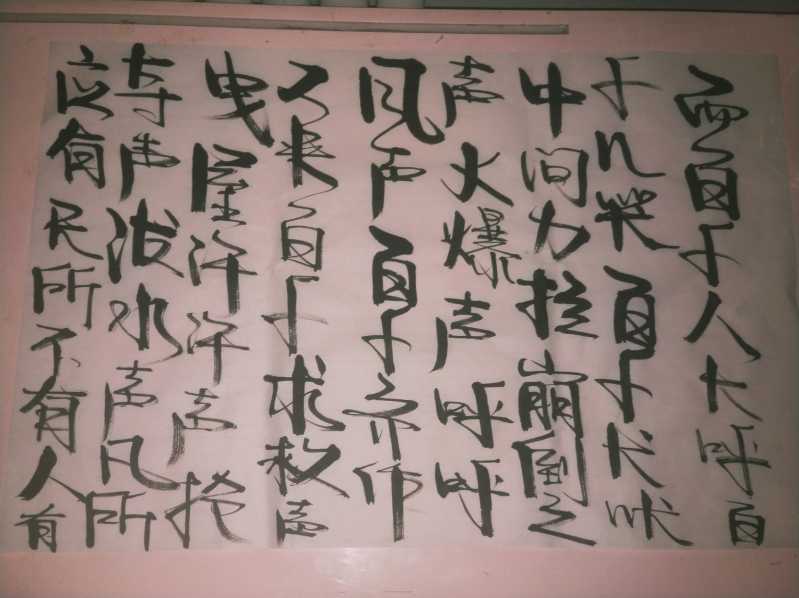 而百千人大呼百
千儿哭百千犬吠
中间力拉崩倒之
声火爆声呼呼
风声百千齐作
又夹百千求救声
曳屋许许声抢
夺声泼水声凡所
应有无所不有人有